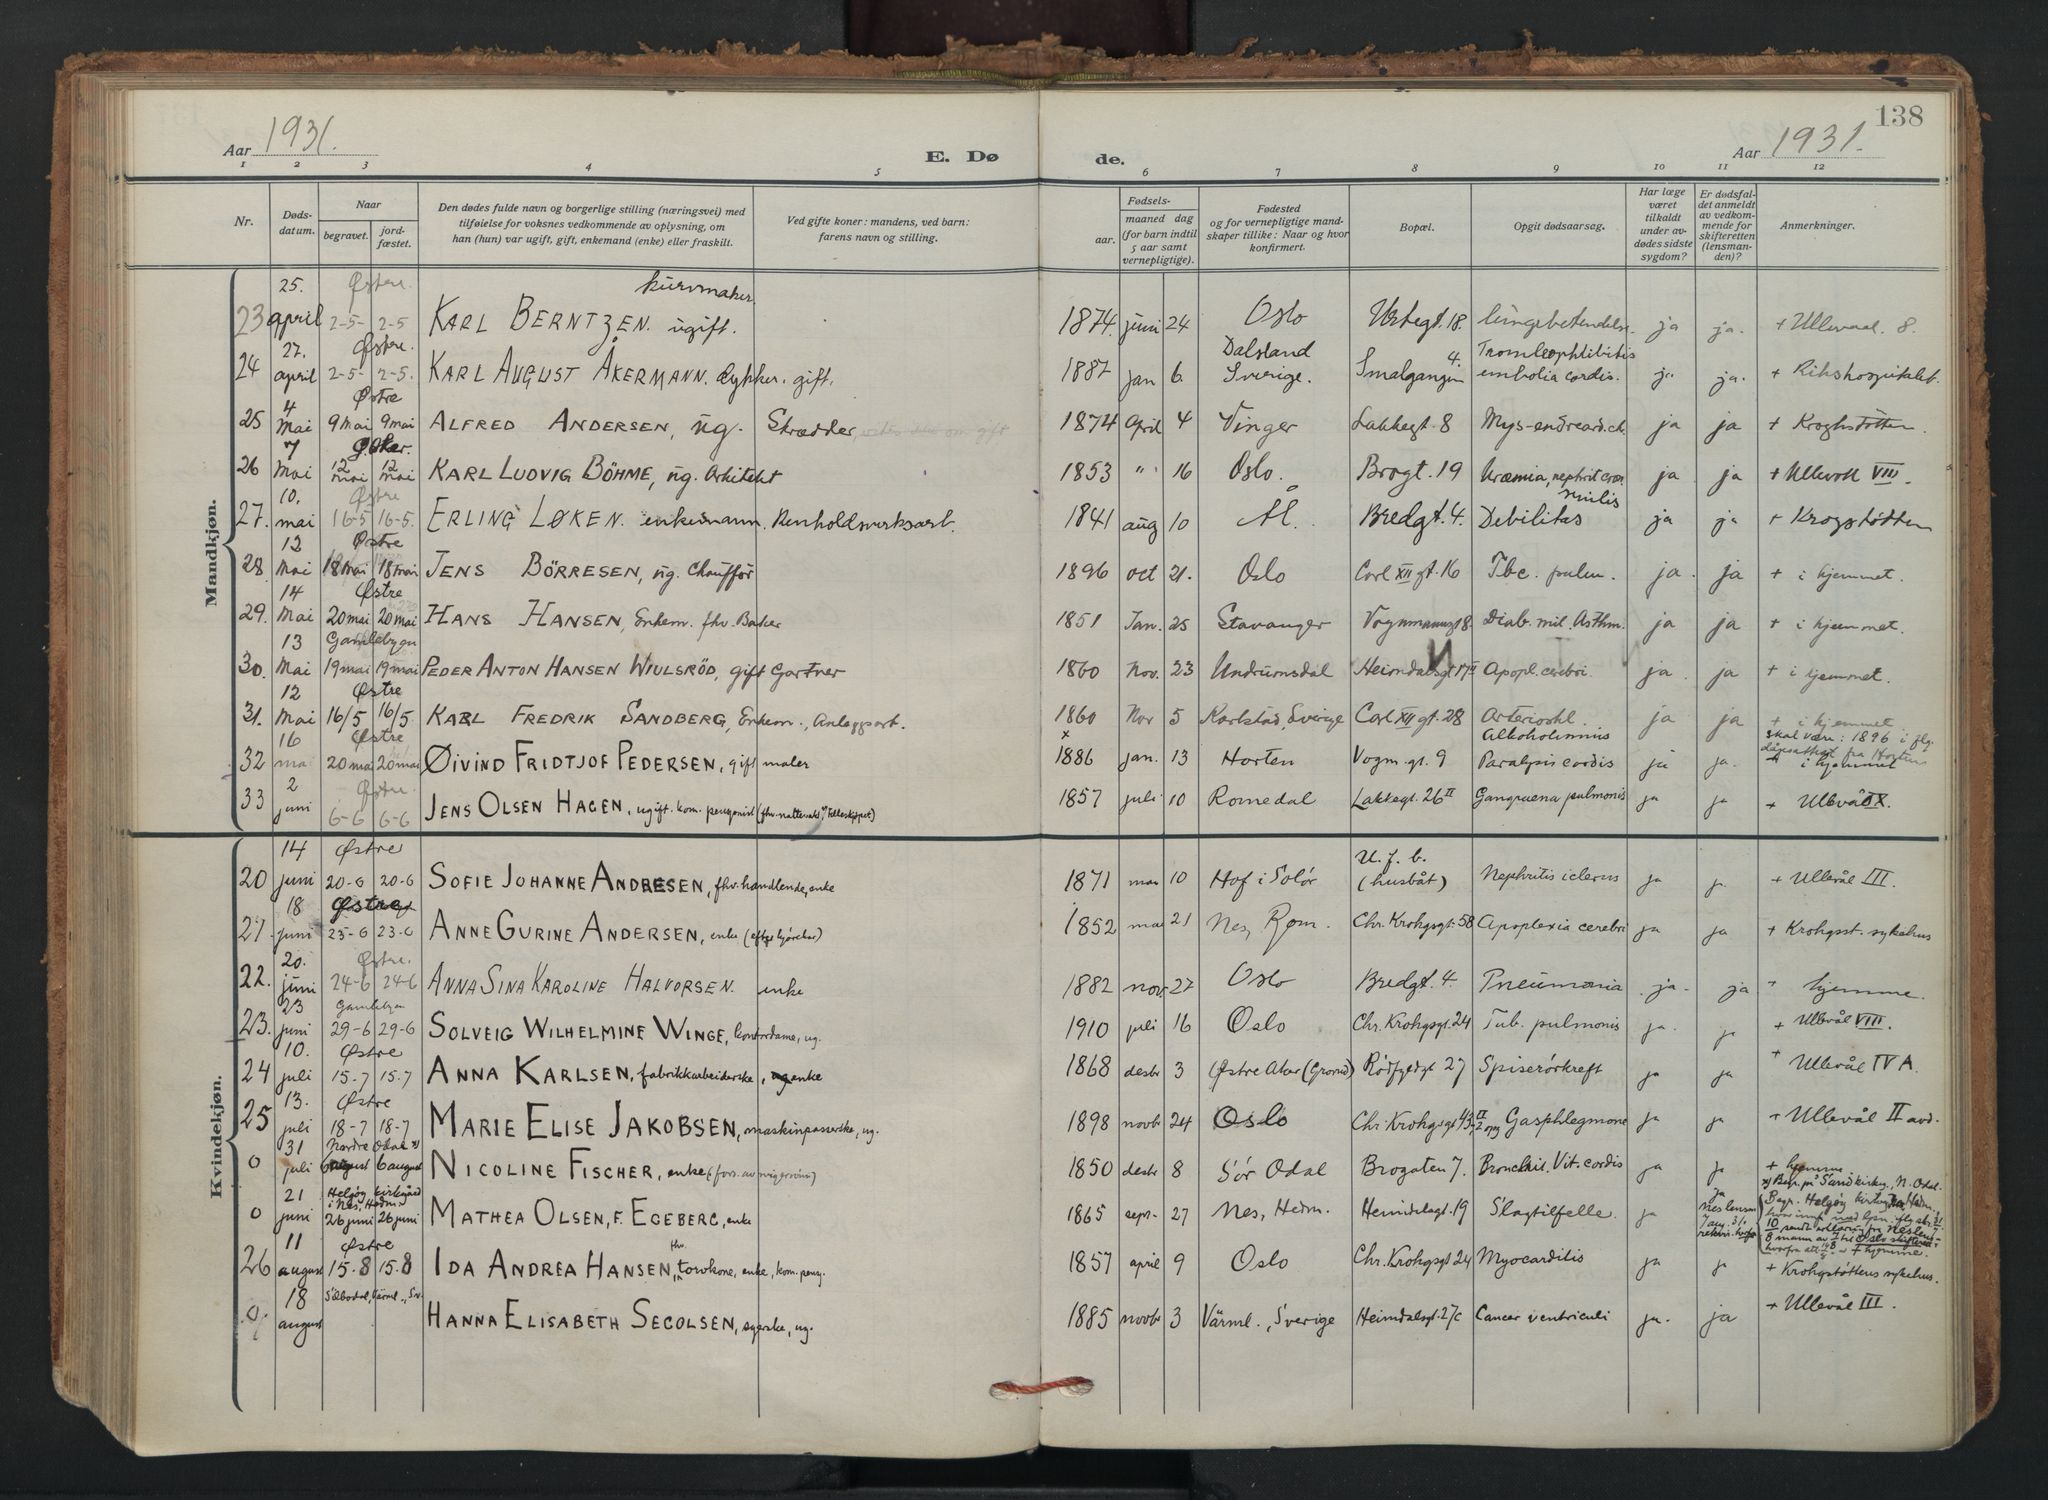 138
Aar 1931.
E. Dø
de.
Aar 1931.
1 2 3 4 5 6 7 8 9 10 11 12
Nr.
Døds-
datum.
Naar
begravet.
jord-
fæstet.
Den dødes fulde navn og borgerlige stilling (næringsvei) med
tilføielse for voksnes vedkommende av oplysning, om
han (hun) var ugift, gift, enkemand (enke) eller fraskilt.
Ved gifte koner: mandens, ved barn:
farens navn og stilling.
Fødsels-
aar.
maaned dag
(for barn indtil
5 aar samt
vernepligtige).
Fødested
og for vernepligtige mand-
skaper tillike: Naar og hvor
konfirmert.
Bopæl.
Opgit dødsaarsag.
Har læge
været
tilkaldt
under av-
dødes sidste
sygdom?
Er dødsfal-
det anmeldt
av vedkom-
mende for
skifteretten
(lensman-
den)?
Anmerkninger.
Mandkjøn.
25. Østre. kurvmaker.
23 april 2-5- 2-5 KARL BERNTZEN. ugift. 1874 juni 24 Oslo Urtegt. 18. lungebetendelse. ja ja. + Ullevaal. 8.
27. Østre. Dalsland 4.
24 april 2-5- 2-5. KARL AUGUST ÅKERMANN. dykker. gift. 1887 jan 6 Sverige. Smalgangen embolia cordis. ja ja. + Rikshospitalet.
4 Østre
25 Mai 9 mai 9 mai ALFRED ANDERSEN, ug. Skrædder, 1874 April 4 Vinger Lakkegt. 8 ja ja + Kroghstøtten
7
26 Mai 12 mai 12 mai KARL LUDVIG BÖHME, ug. Arkitekt 1853 " 16 Oslo. Brogt. 19 Uræmia, ja ja + Ullevoll VIII.
10. Østre
27. mai 16-5 16-5. ERLING LØKEN. enkemann. Renholdsverksarb. 1841 aug 10 Ål. Bredgt. 4. Debilitas ja ja + Krogstøtten
12 Østre
28. Mai 18 mai 18 mai JENS BÖRRESEN, ug. Chauffør 1896 oct 21. Oslo Carl XII gt. 16 Tbc. pulm. ja. ja + i hjemmet.
14 Østre
29. Mai 20 mai 20 mai HANS HANSEN, Enkem. fhv. Baker 1851 Jan. 25 Stavanger Diab. mel. Asthm. ja ja + i hjemmet.
13 Gamlebyen
30. Mai 19 mai 19 mai PEDER ANTON HANSEN WIULSRÖD, gift Gartner 1860 Nov. 23 Undrumsdal Heimdalsgt 17 II Apopl. cerebri. ja ja + i hjemmet.
12 Østre
31. Mai 16/5 16/5 KARL FREDRIK SANDBERG, Enkem., Anleggsarb. 1860 Nov 5 Karlstad, Sverige Carl XII gt. 28 Arterioskl. ja ja + i hjemmet
16 Østre x Alkoholismus skal være: 1896 i flg.
32 mai 20 mai 20 mai ØIVIND FRIDTJOF PEDERSEN, gift maler 1886 jan. 13 Horten Vogm. gt. 9 Paralysis cordis ja ja. dåpsattest fra Horten
+ i hjemmet
2 Østre.
33 juni 6-6 6-6 JENS OLSEN HAGEN, ugift. kom. pensjonist 1857 juli 10 Romedal Lakkegt. 26 II Gangraena pulmonis ja ja + Ullevål IX.
Kvindekjøn.
14 Østre U. f. b.
20 juni 20-6 20-6 SOFIE JOHANNE ANDRESEN, fhv. handlende, enke 1871 mai 10 Hof i Solør (husbåt) Nephritis icterus ja ja + Ullevål III.
18 Østre
21 juni 23-6 23-6 ANNE GURINE ANDERSEN, enke 1852 mai 21 Nes, Rom. Chr. Krohgsgt. 58 Apoplexia cerebri ja ja + Krohgsst. sykehus
20. Østre.
22. juni 24-6 24-6 ANNA SINA KAROLINE HALVORSEN. enke 1882 nov. 27 Oslo Bredgt. 4. Pneumonia ja. ja + hjemme.
23 Gamlebyen
23. juni 29-6 29-6 SOLVEIG WILHELMINE WINGE, kontordame, ug. 1910 juli 16 Oslo Chr. Krohgsgt. 24 Tub. pulmonis ja. ja + Ullevål VIII.
10. Østre
24 juli 15-7 15-7 ANNA KARLSEN, fabrikkarbeiderske, enke 1868 desbr 3 Østre Aker (Grorud) Rødfyldgt 27 Spiserørkreft ja ja + Ullevål IV A.
13. Østre
25 juli 18-7 18-7 MARIE ELISE JAKOBSEN, maskinpasserske, ug. 1898 novbr 24 Oslo Chr. Krohgsgt 43, II opg Gasphlegmone ja ja + Ullevål II avd.
31 Nordre Odal x)
0 juli 6 august 6 august NICOLINE FISCHER, enke 1850 desbr 8 Sør Odal Brogaten 7. Bronchit. Vit. cordis ja ja + hjemme
x) Begr. på Sand kirkeg., N. Odal.
21 Helgøy kirkegård
i Nes, Hedm.
0 juni 26 juni 26 juni MATHEA OLSEN, F. EGEBERG, enke 1865 septr. 27 Nes, Hedm. Heimdalsgt. 19 Slagtilfelle. ja ja
Begr. Helgøy
+ hjemme.
11 Østre
26 august 15.8 15.8 IDA ANDREA HANSEN, fhv. torvkone, enke, kom. pensj. 1857 april 9 Oslo Chr. Krohgsgt 24 Myocarditis ja ja + Krohgstøttens sykehus.
18 Silbodal, Värml., Sv.
0 august HANNA ELISABETH SEGOLSEN, syerske, ug. 1885 novbr 3 Värml., Sverige Heimdalsgt. 27c Cancer ventriculi ja. ja + Ullevål III.